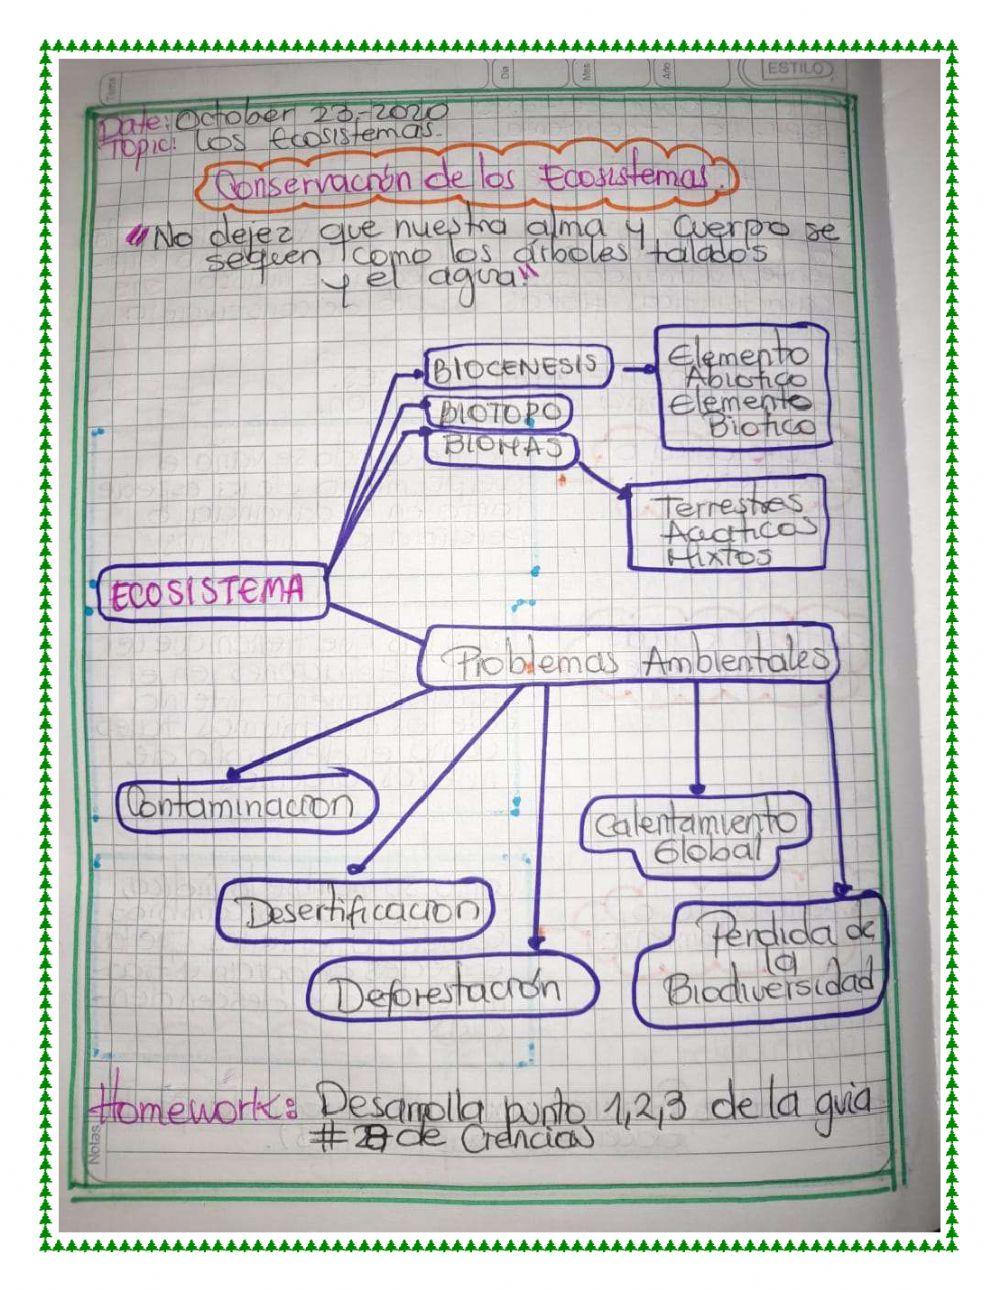 ESTILO
Tema
Dia
Mes
Año
Date: October 23-2020
Topic: Los Ecosistemas.
Conservación de los Ecosistemas.
"No dejez que nuestra alma y cuerpo se
sequen como los árboles talados
y el agua"
BIOCENESIS
Elemento
Abiotico
Elemento
Biotico
BIOTOPO
BIOMAS
Terrestres
Acuáticos
Mixtos
ECOSISTEMA
Problemas Ambientales
Contaminacion
Calentamiento
Global
Desertificacion
Perdida de
la
Biodiversidad
Deforestación
Homework: Desarrolla punto 1,2,3 de la guia
de Ciencias
Notas